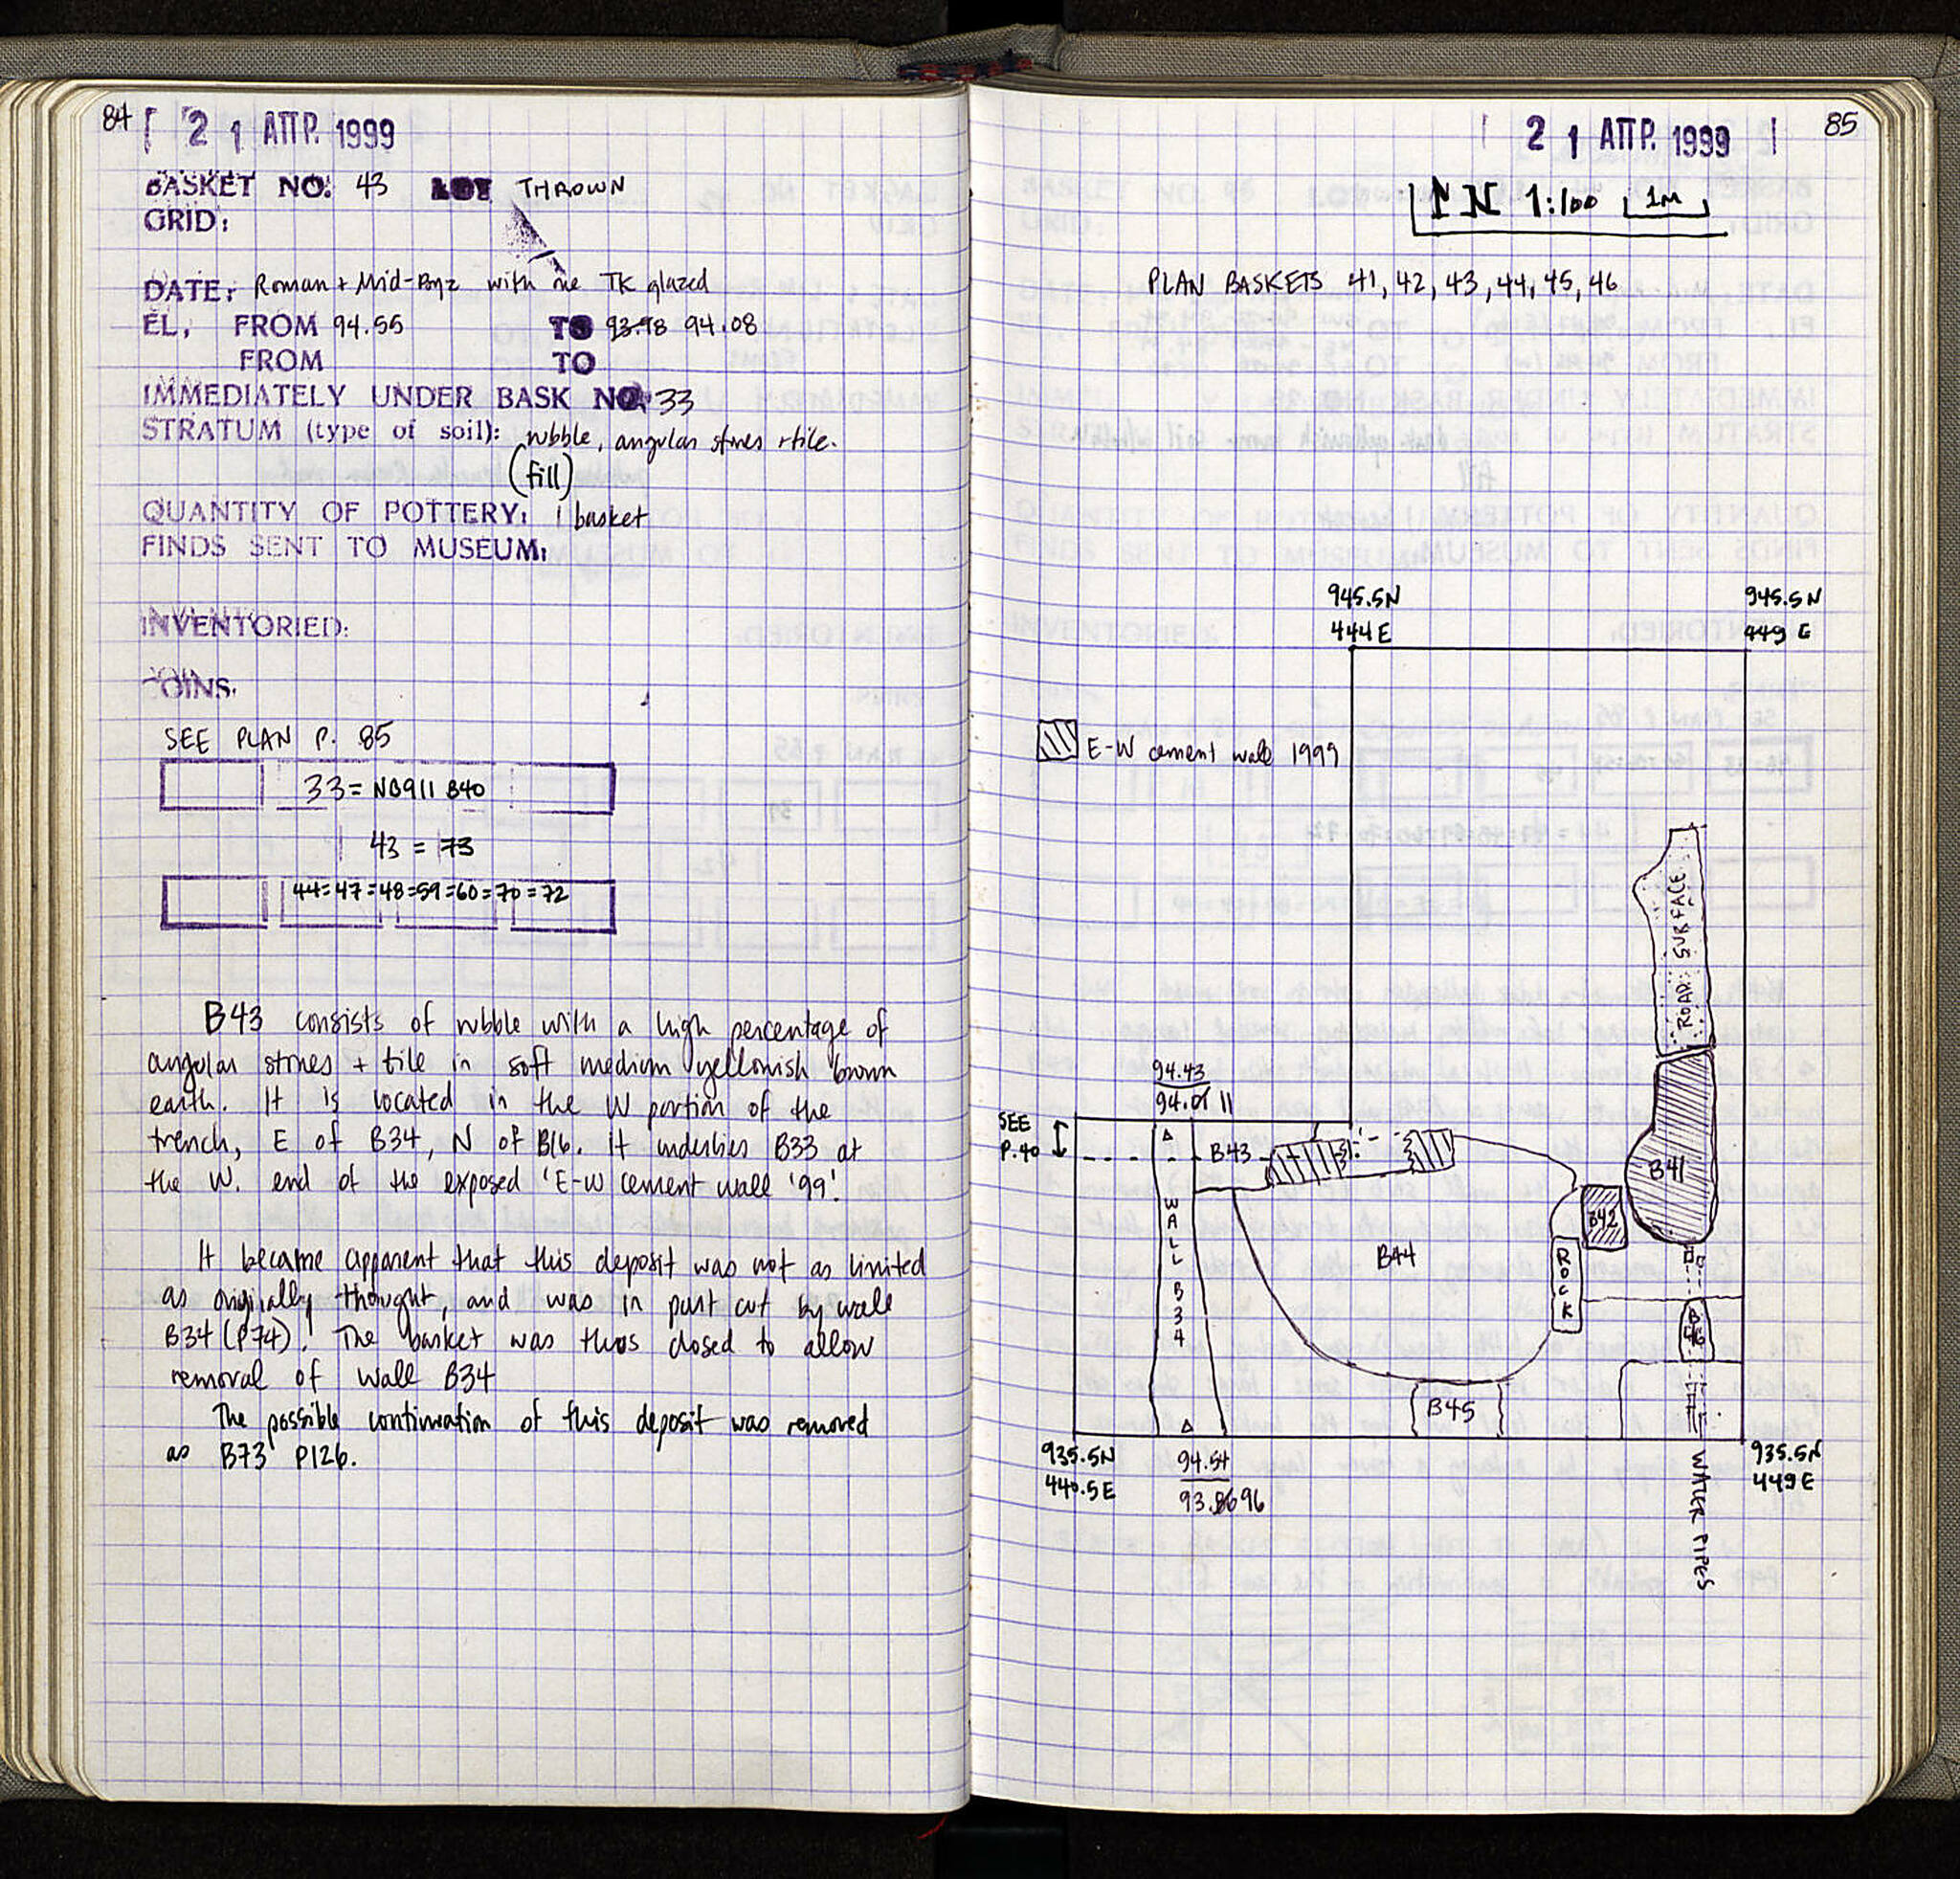 84
2 1 ΑΠΡ. 1999
BASKET NO: 43 LOT THROWN
GRID:
DATE: Roman + Mid-Byz with one TK glazed
EL, FROM 94.55 TO 93.98 94.08
FROM TO
IMMEDIATELY UNDER BASK NO. 33
STRATUM (type of soil): rubble, angular stones + tile.
(fill)
QUANTITY OF POTTERY: 1 basket
FINDS SENT TO MUSEUM:
INVENTORIED:
COINS.
SEE PLAN P. 85
33 = NB911 B40
43 = 73
44=47=48=59=60=70=72
B43 consists of rubble with a high percentage of
angular stones + tile in soft medium yellowish brown
earth. It is located in the W portion of the
trench, E of B34, N of B16. It underlies B33 at
the W. end of the exposed 'E-W cement wall '99'.
It became apparent that this deposit was not as limited
as originally thought, and was in part cut by wall
B34 (P74). The basket was thus closed to allow
removal of wall B34
The possible continuation of this deposit was removed
as B73 P126.
2 1 ΑΠΡ. 1999
85
N 1:100 1M
PLAN BASKETS 41, 42, 43, 44, 45, 46
945.5N
444 E
945.5N
449 E
E-W cement wall 1999
ROAD SURFACE
94.43
94.01 11
SEE
P.40
B43
B41
B42
WALL B34
B44
ROCK
B46
B45
935.5N
440.5E
94.54
93.86 96
935.5N
449E
WATER PIPES